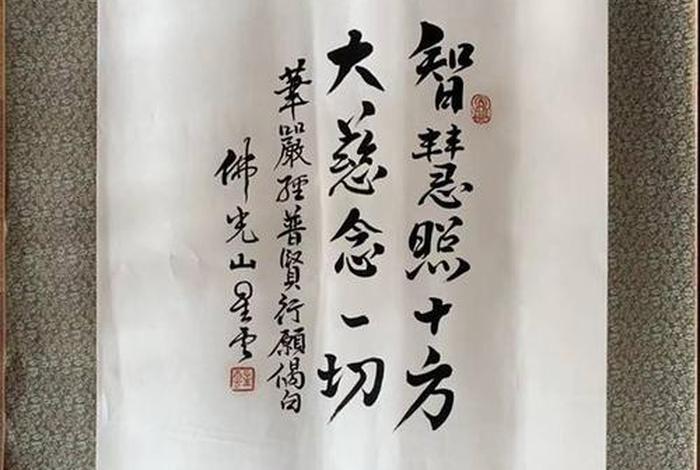 智慧照十方
大慈念一切
華嚴經普賢行願偈句
佛光山星雲